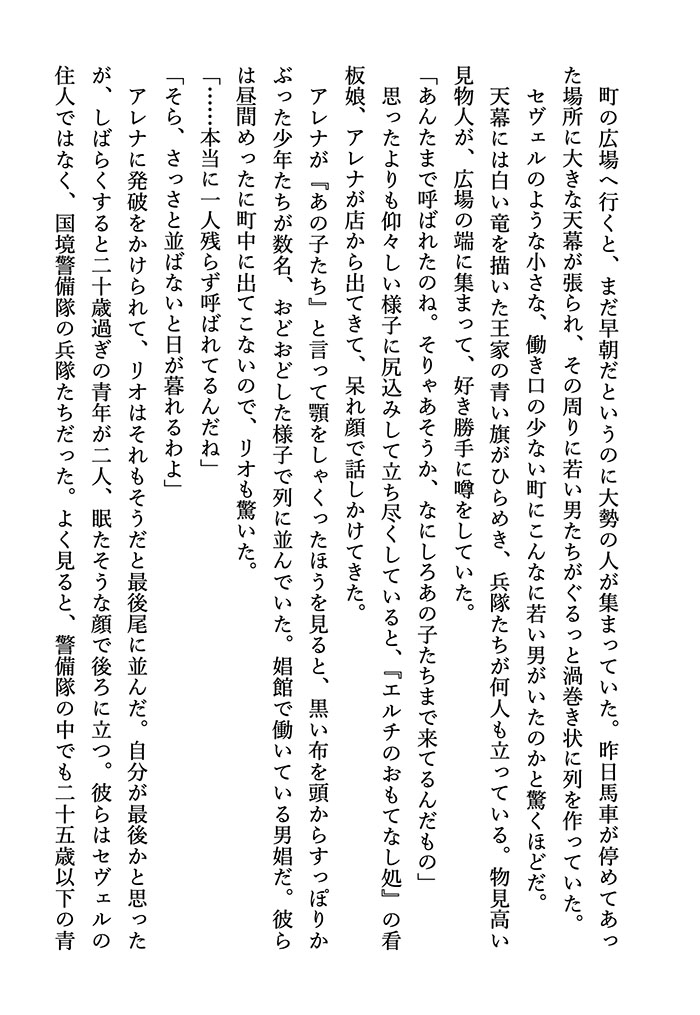 町の広場へ行くと、まだ早朝だというのに大勢の人が集まっていた。昨日馬車が停めてあっ
た場所に大きな天幕が張られ、その周りに若い男たちがぐるっと渦巻き状に列を作っていた。
セヴェルのような小さな、働き口の少ない町にこんなに若い男がいたのかと驚くほどだ。
天幕には白い竜を描いた王家の青い旗がひらめき、兵隊たちが何人も立っている。物見高い
見物人が、広場の端に集まって、好き勝手に噂をしていた。
「あんたまで呼ばれたのね。そりゃあそうか、なにしろあの子たちまで来てるんだもの」
思ったよりも仰々しい様子に尻込みして立ち尽くしていると、『エルチのおもてなし処』の看
板娘、アレナが店から出てきて、呆れ顔で話しかけてきた。
アレナが『あの子たち』と言って顎をしゃくったほうを見ると、黒い布を頭からすっぽりか
ぶった少年たちが数名、おどおどした様子で列に並んでいた。娼館で働いている男娼だ。彼ら
は昼間めったに町中に出てこないので、リオも驚いた。
「……本当に一人残らず呼ばれてるんだね」
「そら、さっさと並ばないと日が暮れるわよ」
アレナに発破をかけられて、リオはそれもそうだと最後尾に並んだ。自分が最後かと思った
が、しばらくすると二十歳過ぎの青年が二人、眠たそうな顔で後ろに立つ。彼らはセヴェルの
住人ではなく、国境警備隊の兵隊たちだった。よく見ると、警備隊の中でも二十五歳以下の青